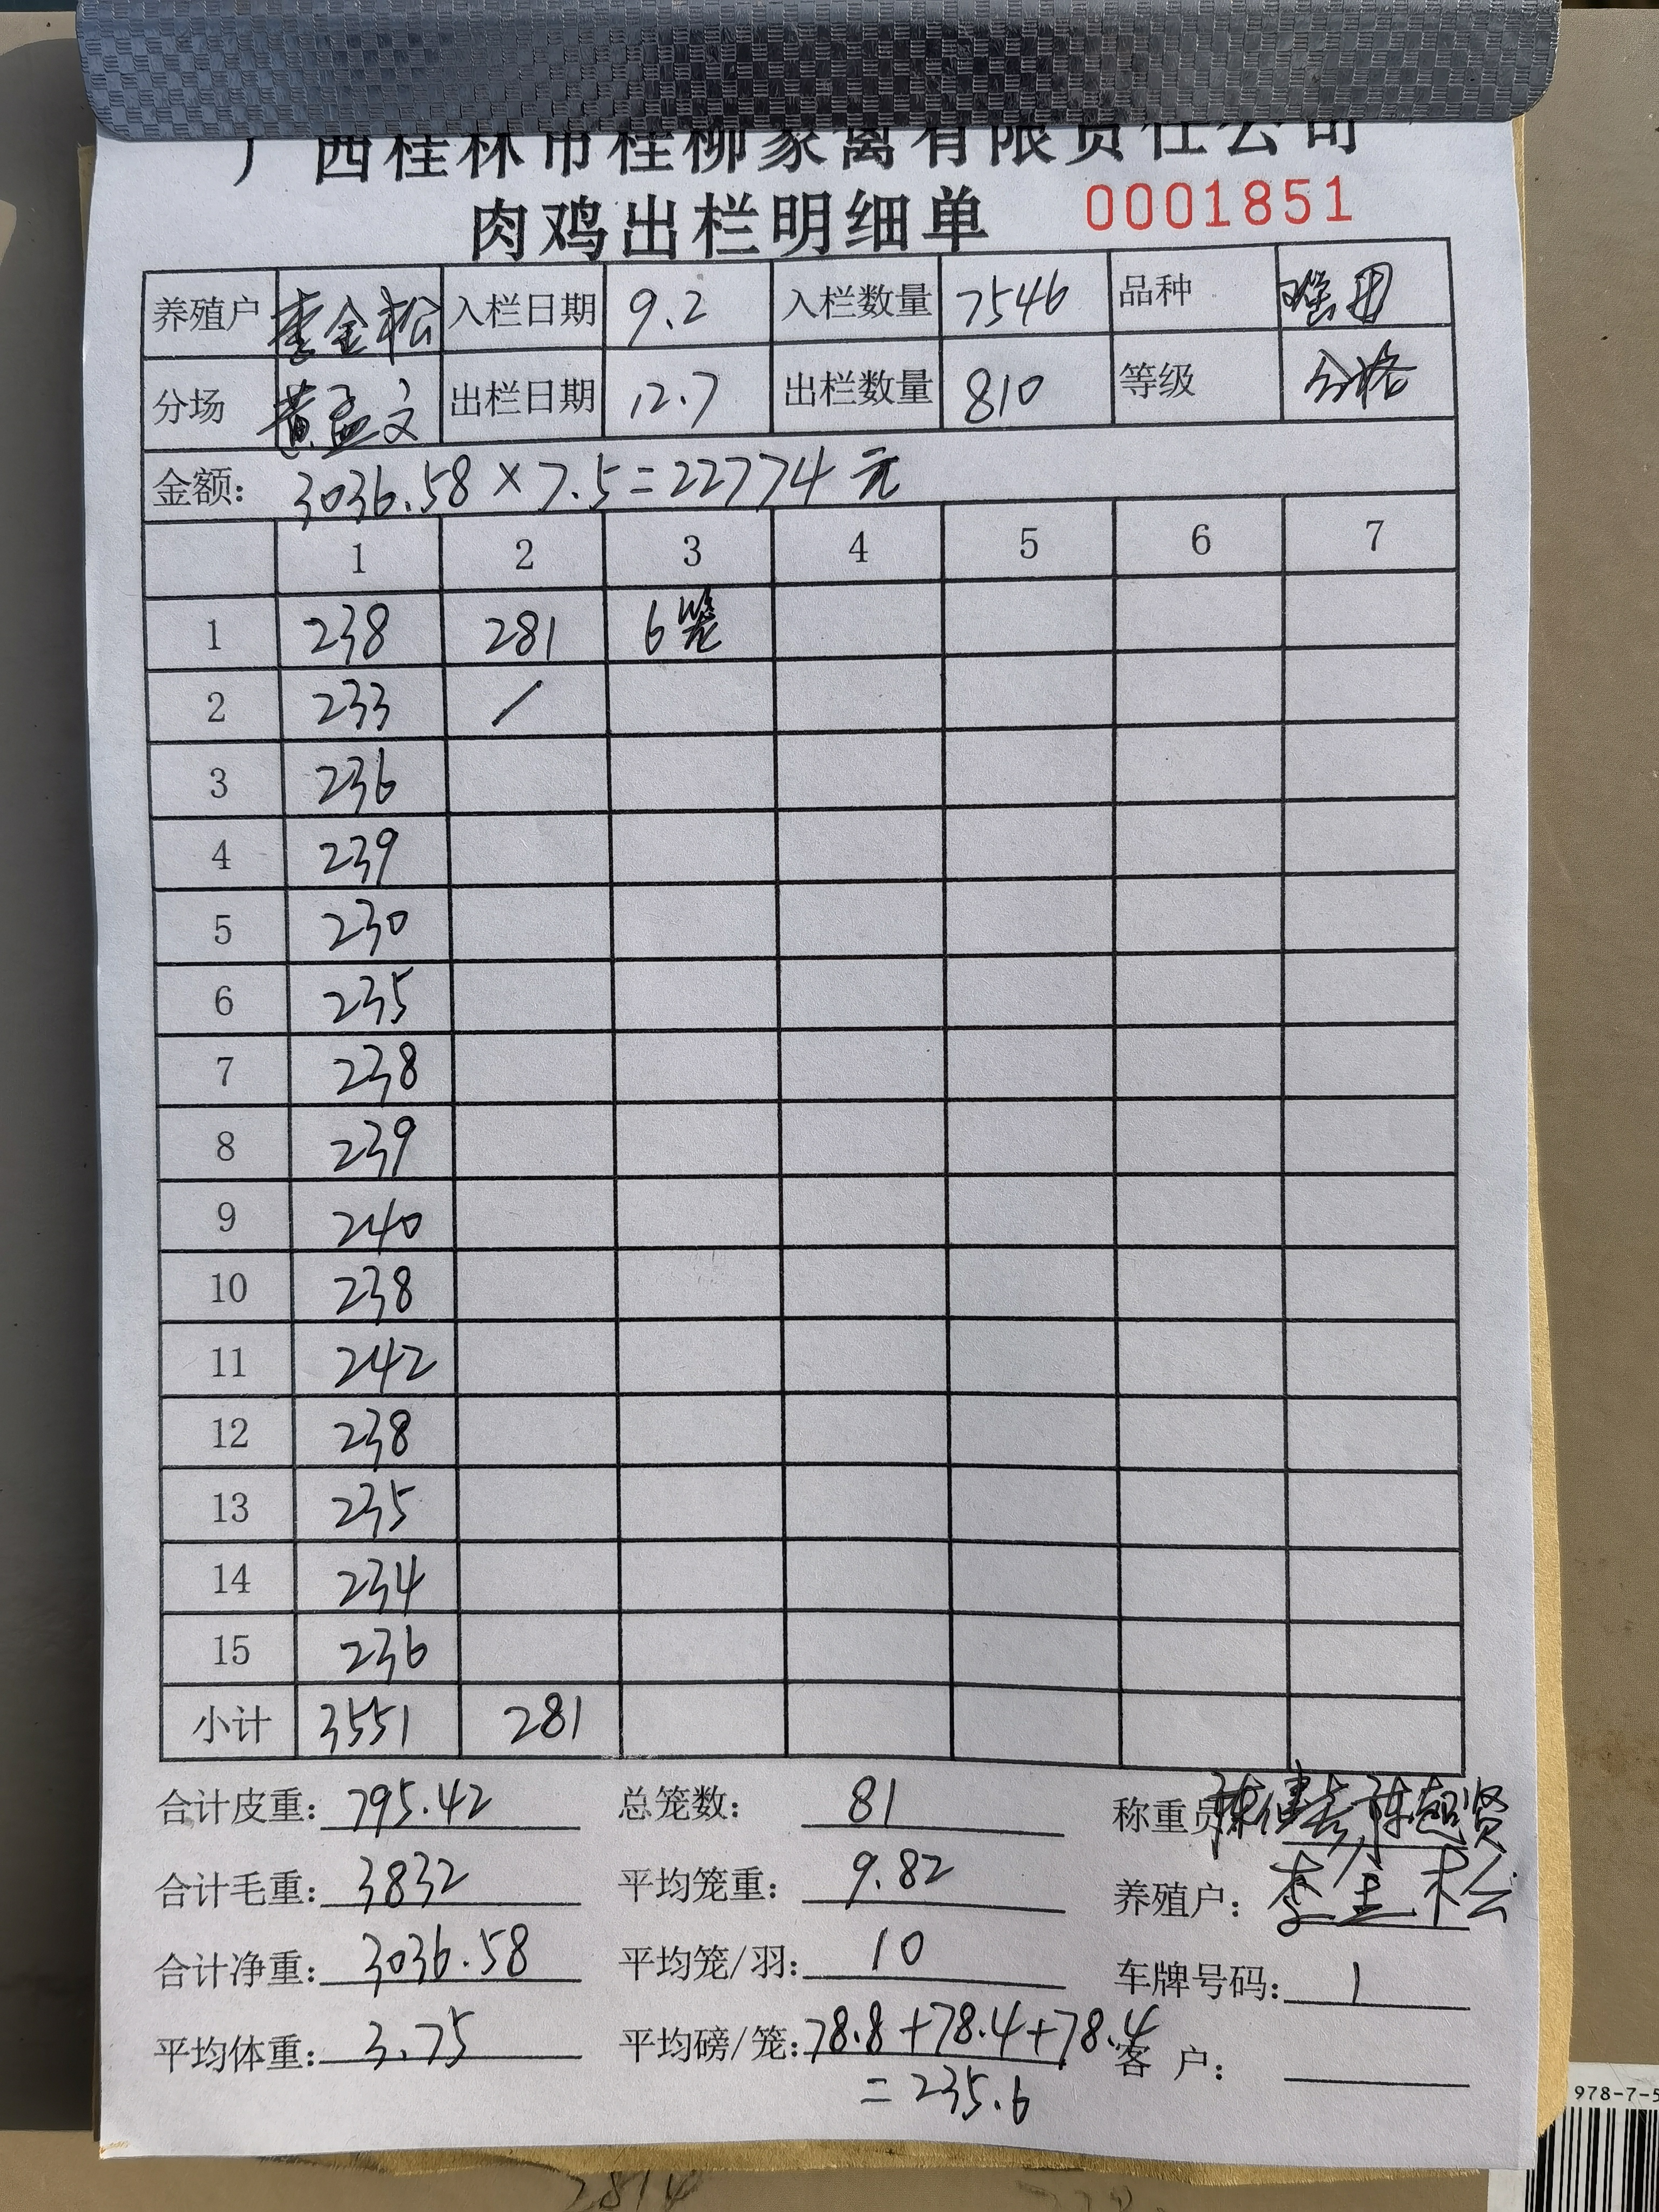 广西桂林市桂柳家禽有限责任公司
肉鸡出栏明细单 0001851
养殖户 李金松 入栏日期 9.2 入栏数量 7546 品种
分场 黄孟文 出栏日期 12.7 出栏数量 810 等级 合格
金额: 3036.58×7.5=22774元
1 2 3 4 5 6 7
1 238 281 6笼
2 233 /
3 236
4 239
5 230
6 235
7 238
8 239
9 240
10 238
11 242
12 238
13 235
14 234
15 236
小计 3551 281
合计皮重: 795.42 总笼数: 81 称重员
合计毛重: 3832 平均笼重: 9.82 养殖户: 李金松
合计净重: 3036.58 平均笼/羽: 10 车牌号码: 1
平均体重: 3.75 平均磅/笼: 78.8+78.4+78.4 客户:
=235.6
978-7-5
2814